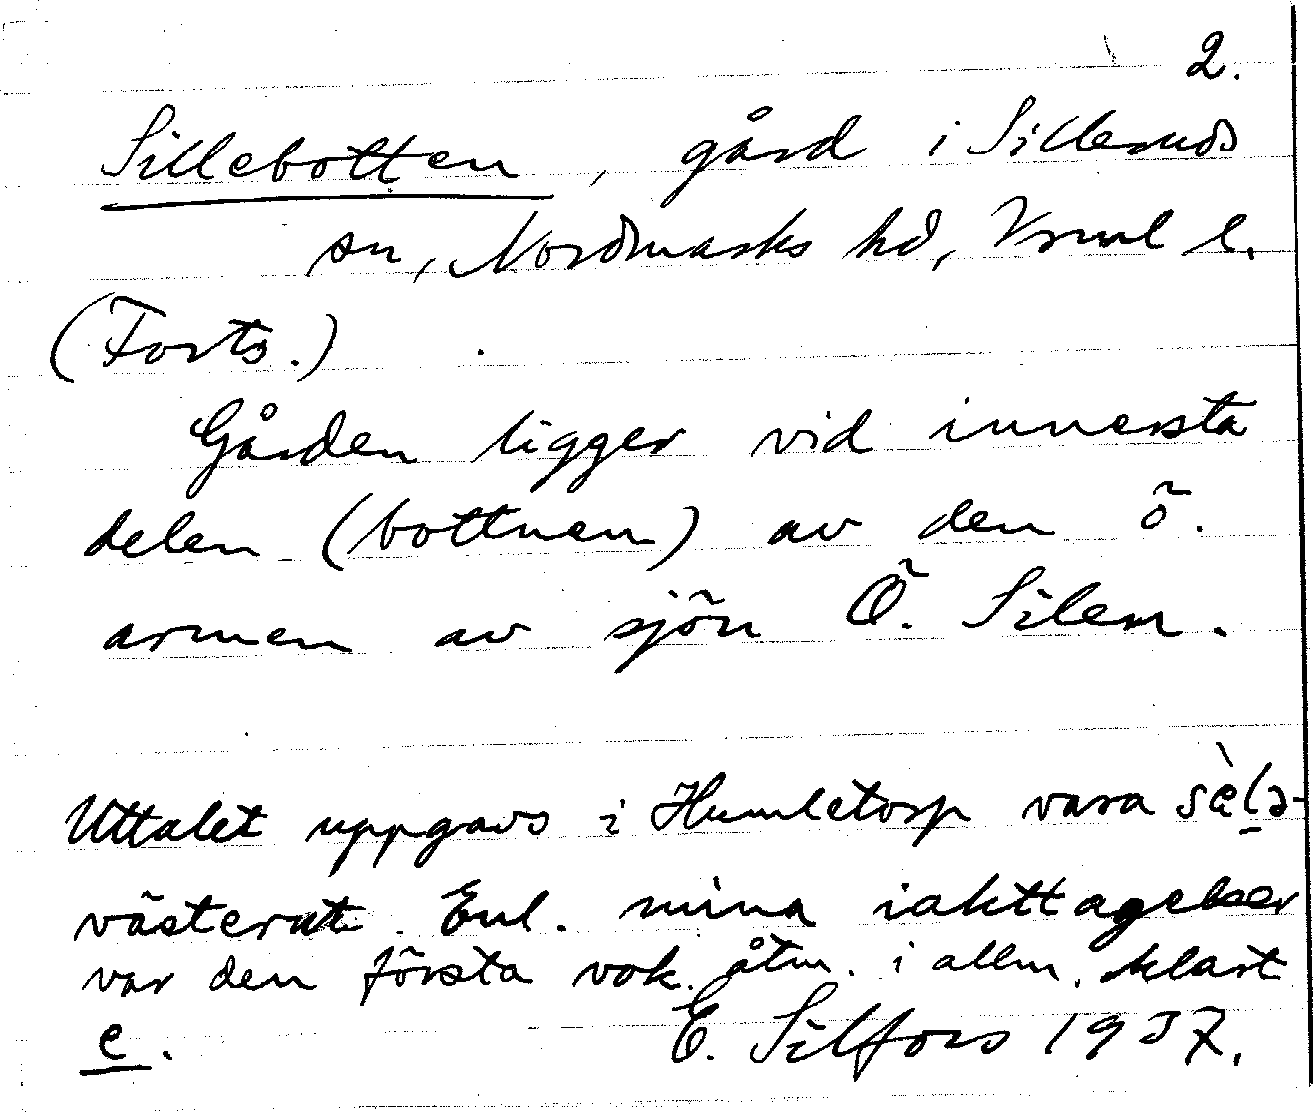 2.
Sillebotten, gård i Silleruds
sn, Nordmarks hd, Vrml l.
(Forts.)
Gården ligger vid innersta
delen (bottnen) av den ö.
armen av sjön Ö. Silen.
Uttalet uppgavs i Humletorp vara
västerut. Enl. mina iakttagelser
var den första vok. åtm. i allm. klart
e.
E. Silfors 1937.